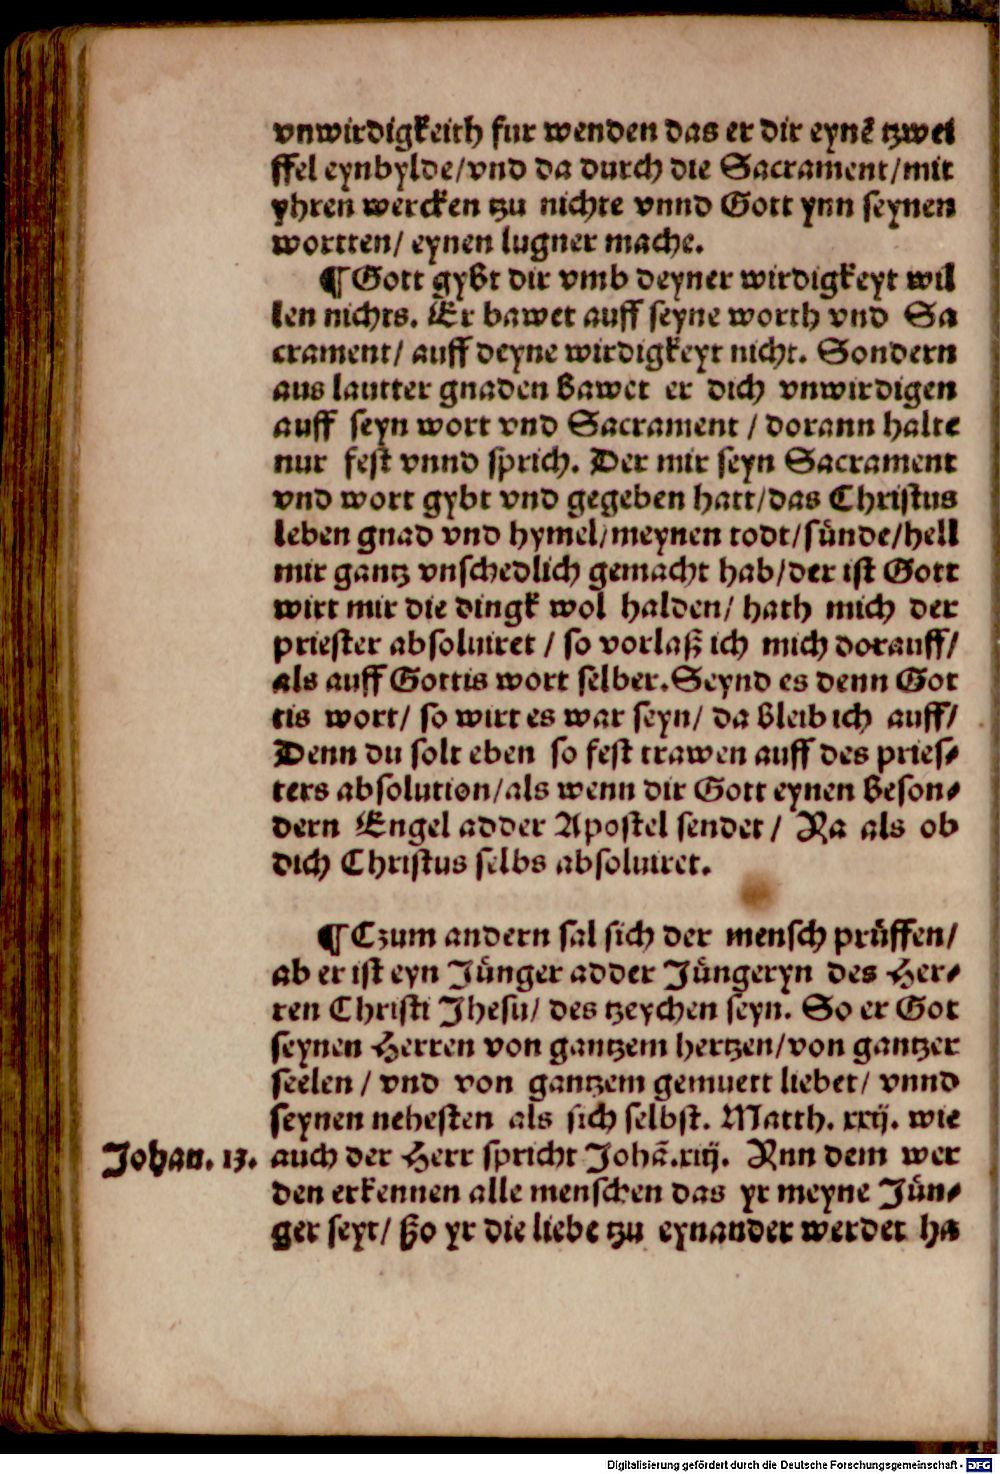 vnwirdigkeith fur wenden das er dir eynē tzwei
ffel eynbylde/vnd da durch die Sacrament/mit
yhren wercken tzu nichte vnnd Gott ynn seynen
wortten/ eynen lugner mache.
¶ Gott gybt dir vmb deyner wirdigkeyt wil
len nichts. Er bawet auff seyne worth vnd Sa
crament/ auff deyne wirdigkeyt nicht. Sondern
aus lautter gnaden bawet er dich vnwirdigen
auff seyn wort vnd Sacrament / dorann halte
nur fest vnnd sprich. Der mir seyn Sacrament
vnd wort gybt vnd gegeben hatt/das Christus
leben gnad vnd hymel/meynen todt/sünde/hell
mir gantz vnschedlich gemacht hab/der ist Gott
wirt mir die dingk wol halden/ hath mich der
priester absoluiret / so vorlaß ich mich dorauff/
als auff Gottis wort selber.Seynd es denn Got
tis wort/ so wirt es war seyn/ da bleib ich auff/
Denn du solt eben so fest trawen auff des pries⸗
ters absolution/als wenn dir Gott eynen beson⸗
dern Engel adder Apostel sendet/ Na als ob
dich Christus selbs absoluiret.
¶ Czum andern sal sich der mensch prüffen/
ab er ist eyn Jünger adder Jüngeryn des Her⸗
ren Christi Jhesu/ des tzeychen seyn. So er Got
seynen Herren von gantzem hertzen/von gantzer
seelen / vnd von gantzem gemuett liebet/ vnnd
seynen nehesten als sich selbst. Matth. xxij. wie
Johan. 13. auch der Herr spricht Johā.xiij. Nnn dem wer
den erkennen alle menschen das yr meyne Jün⸗
ger seyt/ ßo yr die liebe tzu eynander werdet ha
Digitalisierung gefördert durch die Deutsche Forschungsgemeinschaft - DFG